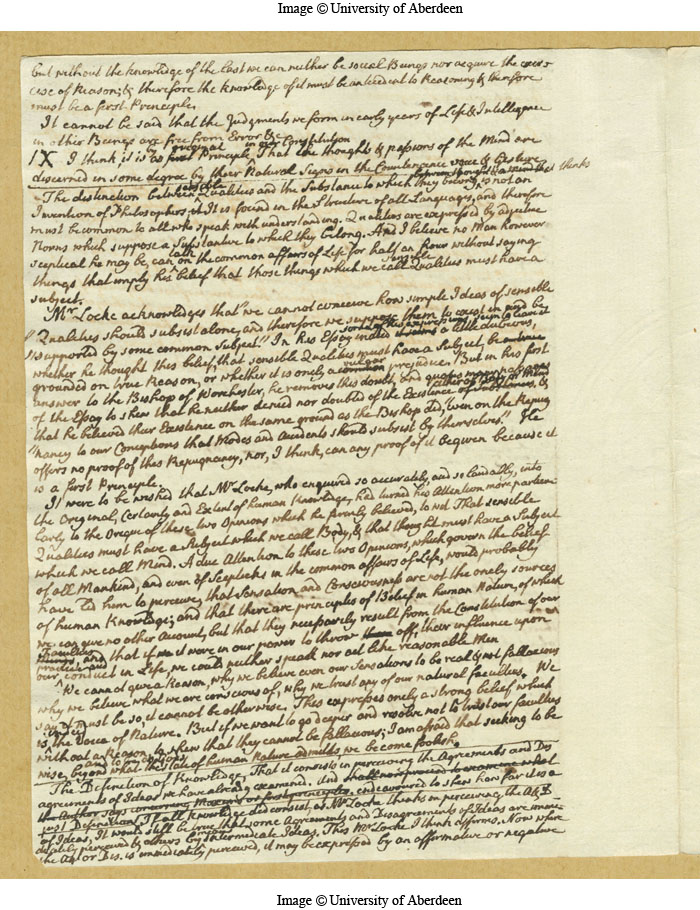 Image © University of Aberdeen
but without the knowledge of the last we can neither be social Beings nor acquire the exer-
cise of Reason; & therefore the knowledge of it must be antecedent to Reasoning & therefore
must be a first Principle.
It cannot be said that the Judgments we form in early years of Life & Intelligence
in other Beings are free from Error &c
original in our Constitution
IX I think it is a first Principle, That the thoughts & passions of the Mind are
discerned in some degree by their Natural Signs in the Countenance voice & Gesture
between thought & a mind that thinks
sensible
The distinction between Qualities and the Substance to which they belong, is not an
Invention of Philosophers; it is found in the Structure of all Languages, and therefore
must be common to all who speak with understanding. Qualities are expressed by adjective
Nouns which suppose a Substance to which they belong. And I believe no Man however
sceptical he may be, can talk on the common affairs of Life for half an hour without saying
things that imply his belief that those things which we call sensible Qualities must have a
subject.
Mr Locke acknowledges that "we cannot conceive how simple Ideas of sensible
"Qualities should subsist alone, and therefore we suppose them to exist in and be
"supported by some common subject" In his Essay indeed
whether he thought this belief, that sensible Qualities must have a Subject, be
grounded on true Reason, or whether it is only a vulgar prejudice. But in his first
answer to the Bishop of Worchester, he removes this doubt, and quotes many passages
of the Essay to shew that he neither denied nor doubted of the Existence of &
that he believed their Existence on the same ground as the Bishop did, "even on the Repug
"nancy to our Conceptions that Modes and Accidents should subsist by themselves." He
offers no proof of this Repugnancy, nor, I think, can any proof of it be given because it
is a first Principle.
It were to be wished that Mr Locke, who enquired so accurately, and so laudably, into
the Origin, Certainty and Extent of human Knowledge, had turned his Attention more particu
larly to the Origin of these two Opinions which he firmly believed, to wit That sensible
Qualities must have a Subject which we call Body, & that thought must have a Subject
which we call Mind. A due Attention to these two Opinions, which govern the belief
of all Mankind, and even of Scepticks in the common affairs of Life, would probably
have led him to perceive, that Sensation and Consciousness are not the only sources
of human Knowledge; and that there are principles of Belief in human Nature, of which
we can give no other Account, but that they necessarily result from the Constitution of our
faculties and that if it were in our power to throw off, their influence upon
our practice and conduct in Life, we could neither speak nor act like reasonable Men
We cannot give a Reason, why we believe even our Sensations to be real & not fallacious
why we believe what we are conscious of; why we trust any of our natural faculties. We
say it must be so, it cannot be otherwise. This expresses only a strong belief which
is indeed the Voice of Nature. But if we want to go deeper and resolve not to trust our faculties
without a Reason, to shew that they cannot be fallacious; I am afraid that seeking to be
wise, beyond what the state of human Nature admits we become foolish.
The Definition of Knowledge, That it consists in perceiving the Agreements and Dis
agreements of Ideas we have already examined, And
endeavoured to shew how far it is a
just Definition. If all knowledge did consist, as Mr Locke thinks in perceiving the A & D
of Ideas, It would still be true that some Agreements and Disagreements of Ideas are imme
diately perceived & others by Intermediate Ideas. This Mr Locke I think affirms. Now where
the Ag or Dis. is immediately perceived, it may be expressed by an affirmative or negative
Image © University of Aberdeen